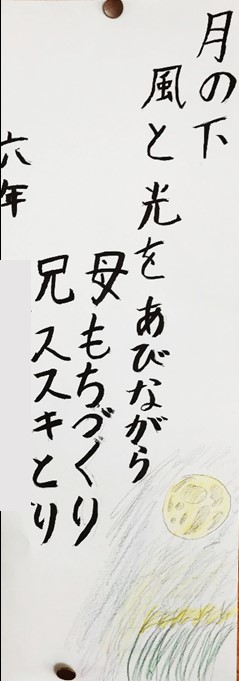 月の下
風と光をあびながら
母もちづくり
兄ススキとり
六年